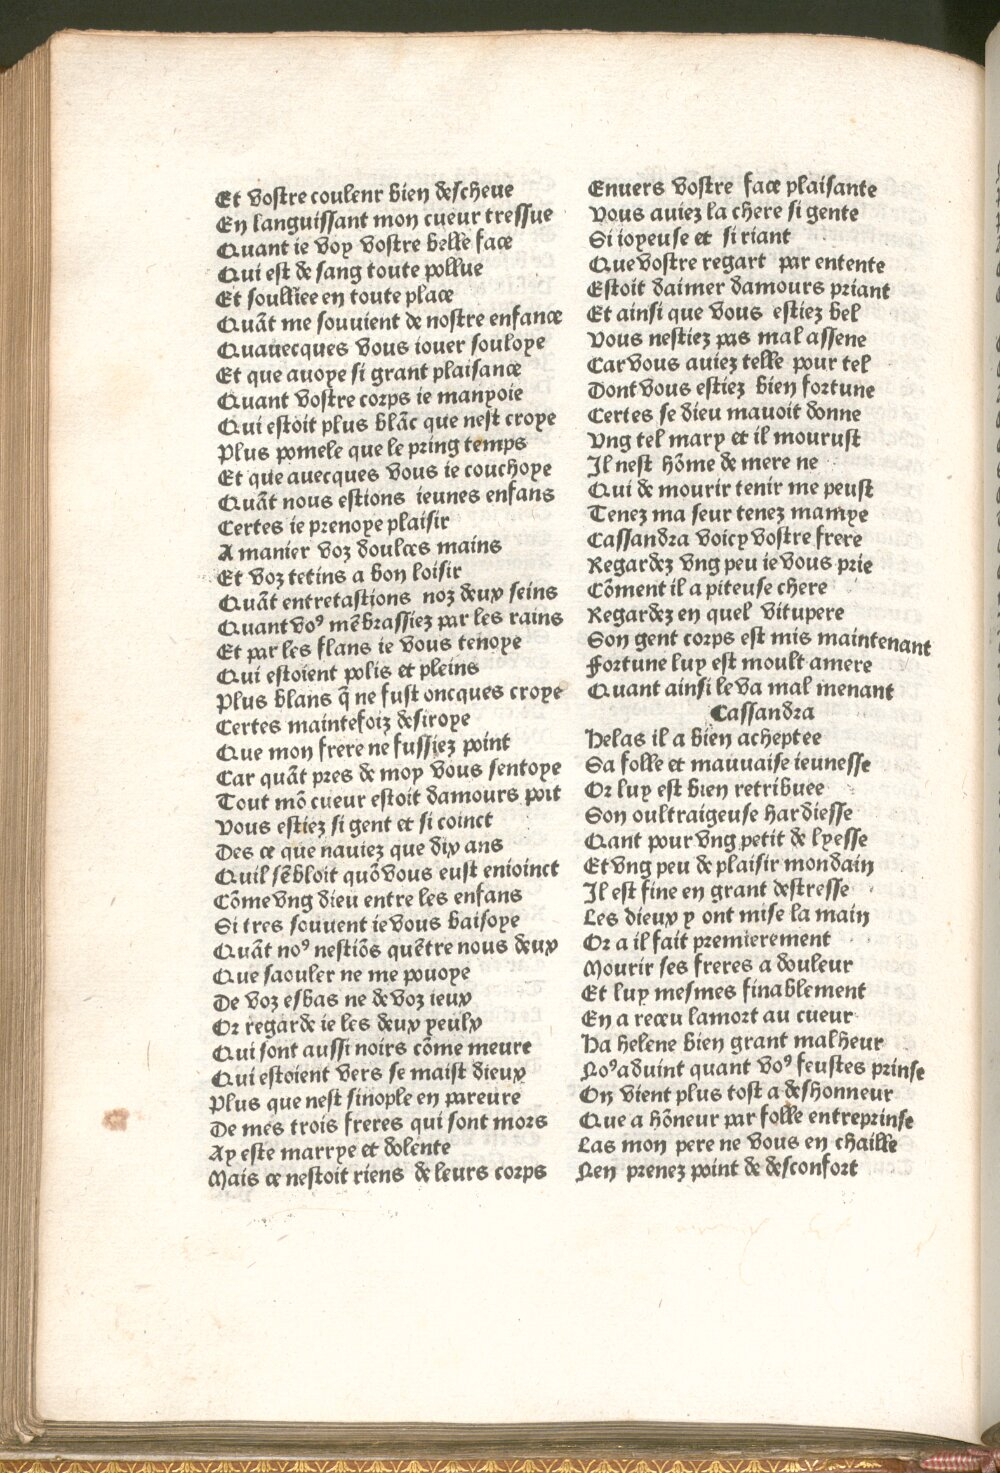 Et vostre coulenr bien descheue
En languissant mon cueur tressue
Quant ie voy vostre belle face
Qui est de sang toute pollue
Et soulliee en toute place
Quāt me souuient de nostre enfance
Quauecques vous iouer souloye
Et que auoye si grant plaisance
Quant vostre corps ie manyoie
Qui estoit plus blāc que nest croye
Plus pomele que le pring temps
Et que auecques vous ie couchoye
Quāt nous estions ieunes enfans
Certes ie prenoye plaisir
A manier voz doulces mains
Et voz tetins a bon loisir
Quāt entretastions noz deux seins
Quant voꝰ mēbrassiez par les rains
Et par les flans ie vous tenoye
Qui estoient polis et pleins
Plus blans q̄ ne fust oncques croye
Certes maintefoiz desiroye
Que mon frere ne fussiez point
Car quāt pres de moy vous sentoye
Tout mō cueur estoit damours poit
Vous estiez si gent et si coinct
Des ce que nauiez que dix ans
Quil sēbloit quōvous eust enioinct
Cōme vng dieu entre les enfans
Si tres souuent ie vous baisoye
Quāt noꝰ nestiōs quētre nous deux
Que saouler ne me pouoye
De voz esbas ne de voz ieux
Or regarde ie les deux yeulx
Qui sont aussi noirs cōme meure
Qui estoient vers se maist dieux
Plus que nest sinople en pareure
De mes trois freres qui sont mors
Ay este marrye et dolente
Mais ce nestoit riens de leurs corps
Enuers vostre face plaisante
Vous auiez la chere si gente
Si ioyeuse et si riant
Que vostre regart par entente
Estoit daimer damours priant
Et ainsi que vous estiez bel
Vous nestiez pas mal assene
Car vous auiez telle pour tel
Dont vous estiez bien fortune
Certes se dieu mauoit donne
Vng tel mary et il mourust
Il nest hōme de mere ne
Qui de mourir tenir me peust
Tenez ma seur tenez mamye
Cassandra voicy vostre frere
Regardez vng peu ie vous prie
Cōment il a piteuse chere
Regardez en quel vitupere
Son gent corps est mis maintenant
Fortune luy est moult amere
Quant ainsi le va mal menant
Cassandra
Helas il a bien acheptee
Sa folle et mauuaise ieunesse
Or luy est bien retribuee
Son oultraigeuse hardiesse
Qant pour vng petit de lyesse
Et vng peu de plaisir mondain
Il est fine en grant destresse
Les dieux y ont mise la main
Or a il fait premierement
Mourir ses freres a douleur
Et luy mesmes finablement
En a receu lamort au cueur
Ha helene bien grant malheur
Noꝰ aduint quant voꝰ feustes prinse
On vient plus tost a deshonneur
Que a hōneur par folle entreprinse
Las mon pere ne vous en chaille
Nen prenez point de desconfort